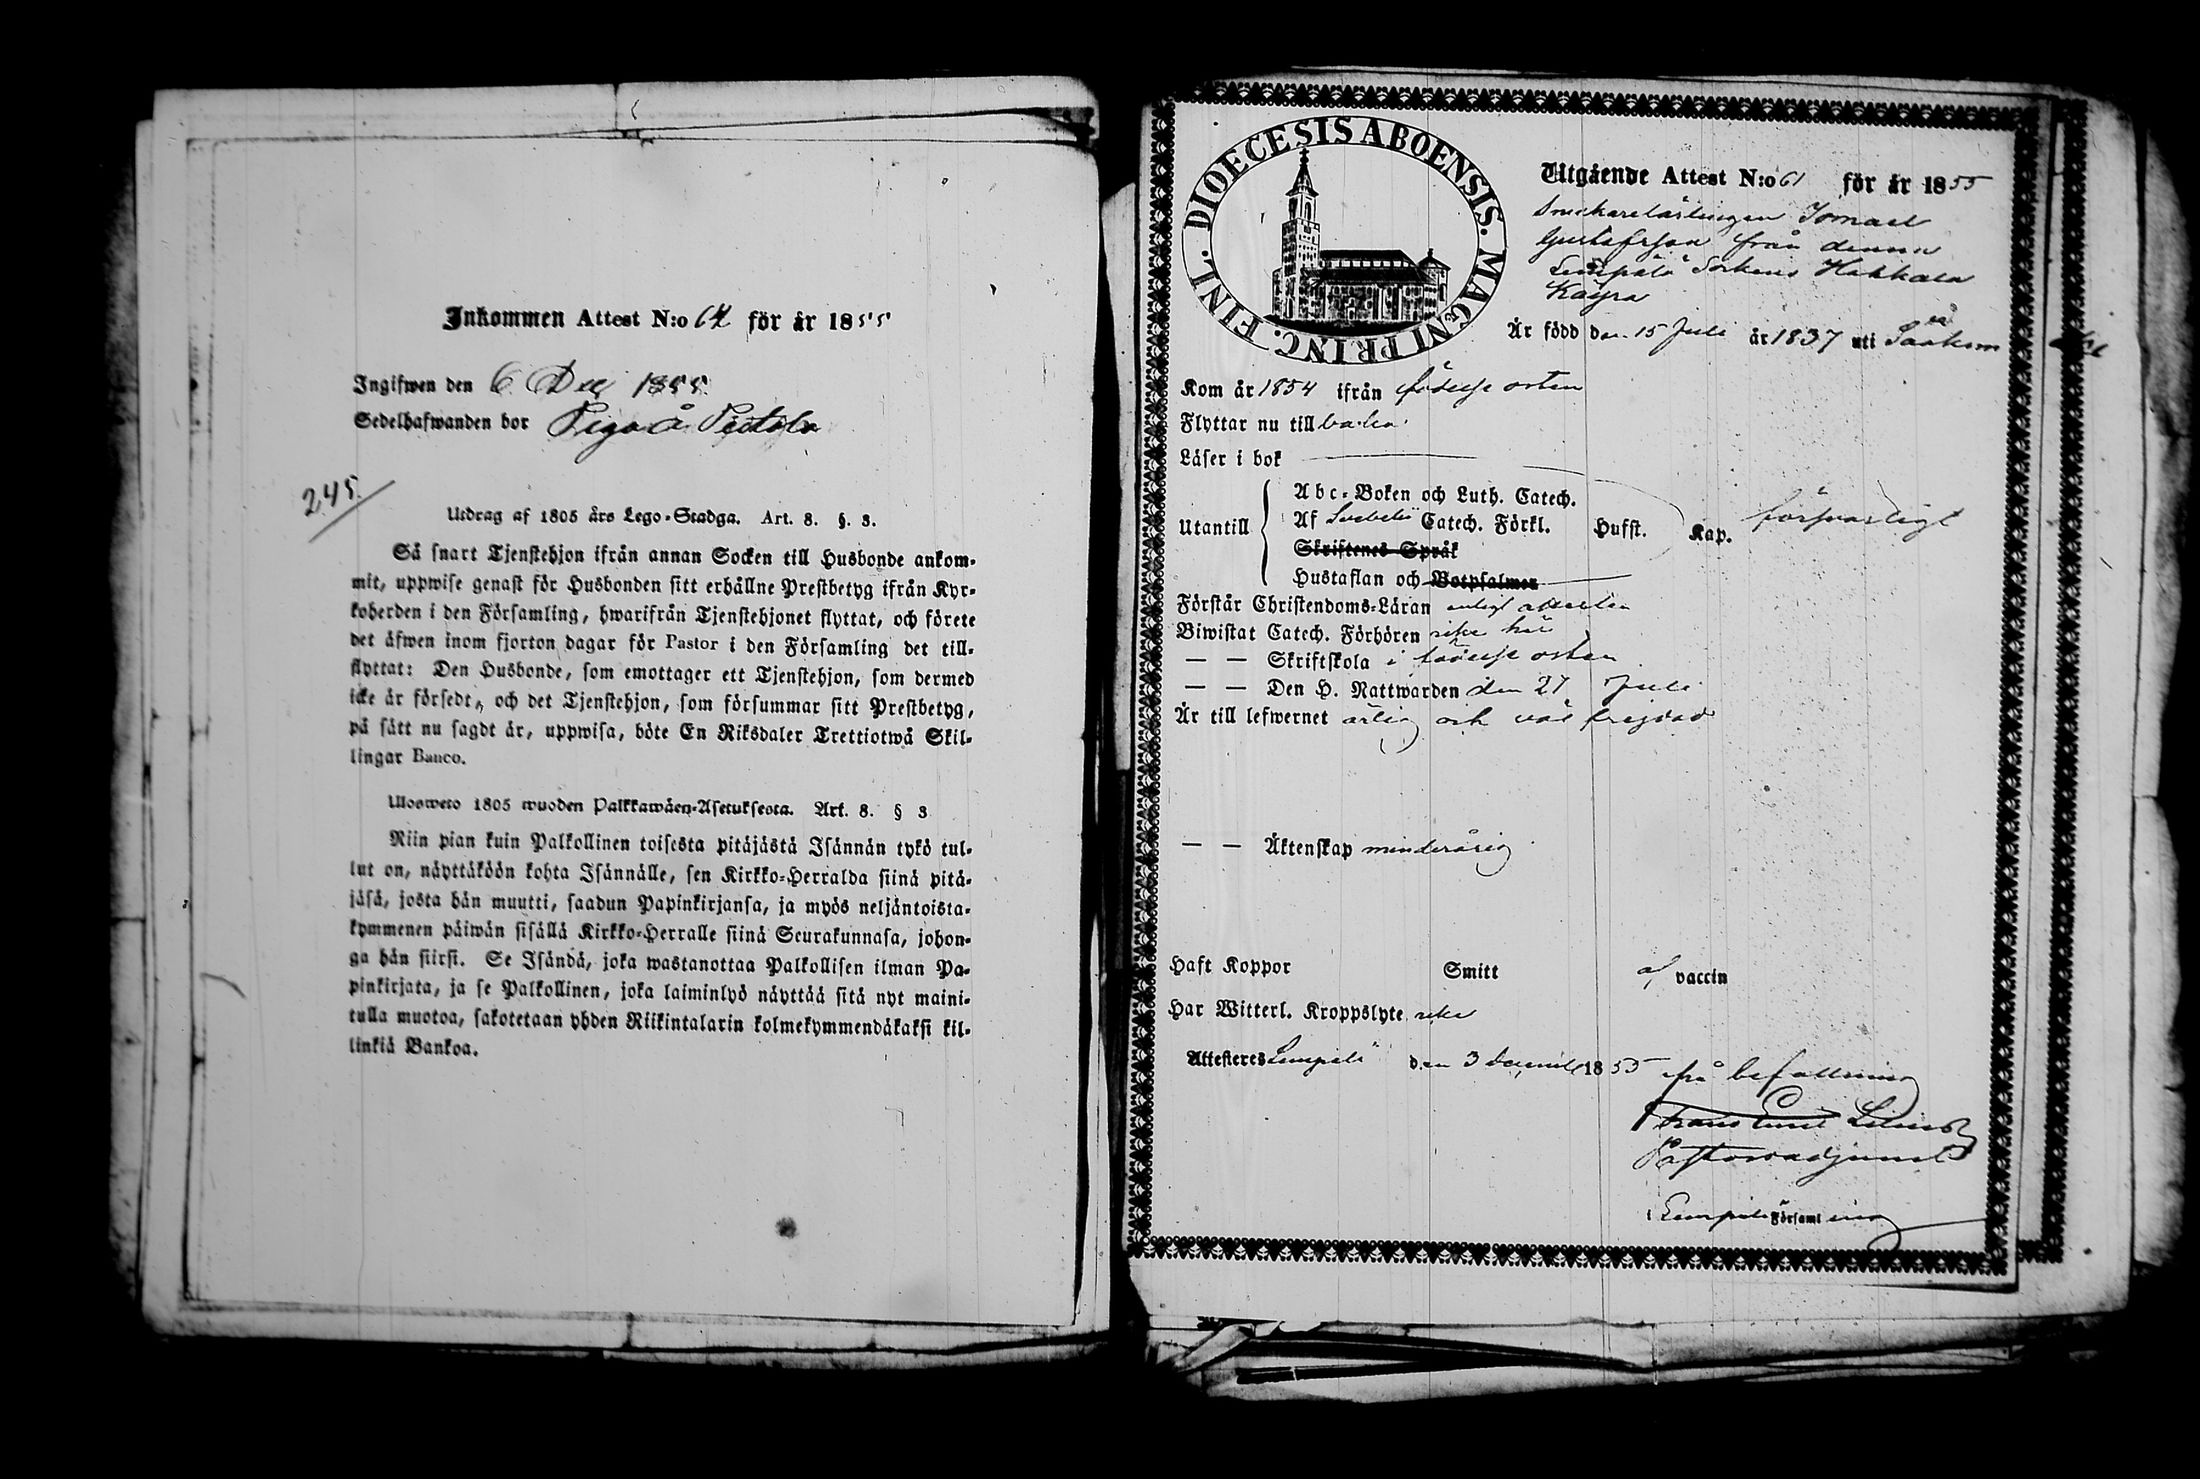 Inkommen Attest N:o 64 för år 1855
Ingifwen den 6 Dec 1855.
Sedelhafwanden bor
245
Utdrag af 1805 års Lego-Stadga. Art. 8. §. 3.
Så snart Tjenstehjon ifrån annan Socken till Husbonde ankom-
mit, uppwise genast för Husbonden sitt erhållne Prestbetyg ifrån Kyr-
koherden i den Församling, hwarifrån Tjenstehjonet flyttat, och förete
det äfwen inom fjorton dagar för Pastor i den Församling det till-
flyttat: Den Husbonde, som emottager ett Tjenstehjon, som dermed
icke är försedt, och det Tjenstehjon, som försummar sitt Prestbetyg,
på sätt nu sagdt är, uppwisa, böte En Riksdaler Trettiotwå Skil-
lingar Banco.
Ulosweto 1805 wuoden Palkkawäen-Asetuksesta. Art. 8. § 3
Niin pian kuin Palkollinen toisesta pitäjästä Isännän tykö tul-
lut on, näyttäköön kohta Isännälle, sen Kirkko-Herralda siinä pitä-
jäsä, josta hän muutti, saadun Papinkirjansa, ja myös neljäntoista-
kymmenen päiwän sisällä Kirkko-Herralle siinä Seurakunnasa, johon-
ga hän siirsi. Se Isändä, joka wastanottaa Palkollisen ilman Pa-
pinkirjata, ja se Palkollinen, joka laiminlyö näyttää sitä nyt maini-
tulla muotoa, sakotetaan yhden Riikintalarin kolmekymmendäkaksi kil-
linkiä Bankoa.
DIOECESIS ABOENSIS. MAGNI PRINC. FINL.
Utgående Attest N:o 61 för år 1855
Snickarelärlingen Ismael
Gustafsson från denna
Lempälä Sockens Hakkala
Kåyra
Är född den 15 Juli år 1837 uti
Kom år 1854 ifrån födelse orten
Flyttar nu till baka
Läser i bok
Abc-Boken och Luth. Catech.
Utantill Af Svebelii Catech. Förkl. Husst. Kap. försvarligt
Skriftenes Språk
Hustaflan och Botpsalmer
Förstår Christendoms-Läran enligt attesten
Biwistat Catech. Förhören icke här
— — Skriftskola i födelse orten
— — Den H. Nattwarden den 27 Juli
Är till lefwernet ärlig och väl frejdad
— — Äktenskap minderårig
Haft Koppor Smitt af vaccin
Har Witterl. Kroppslyte icke
Attesteres Lempälä den 3 December 1855 på befallning
Pastorsadjunct
i Lempälä Församling